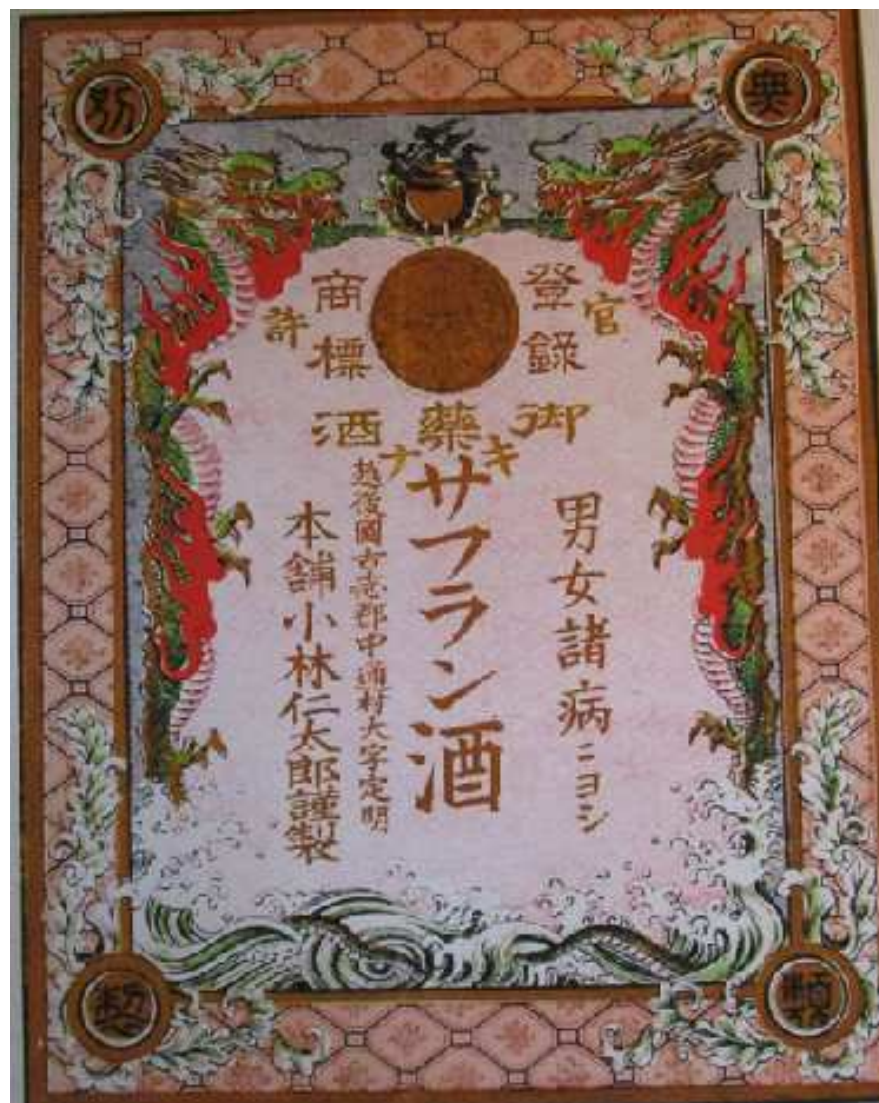 官許
登録
商標
御藥酒
キナ
サフラン酒
男女諸病ニヨシ
越後國古志郡中通村大字定明
本舗小林仁太郎謹製